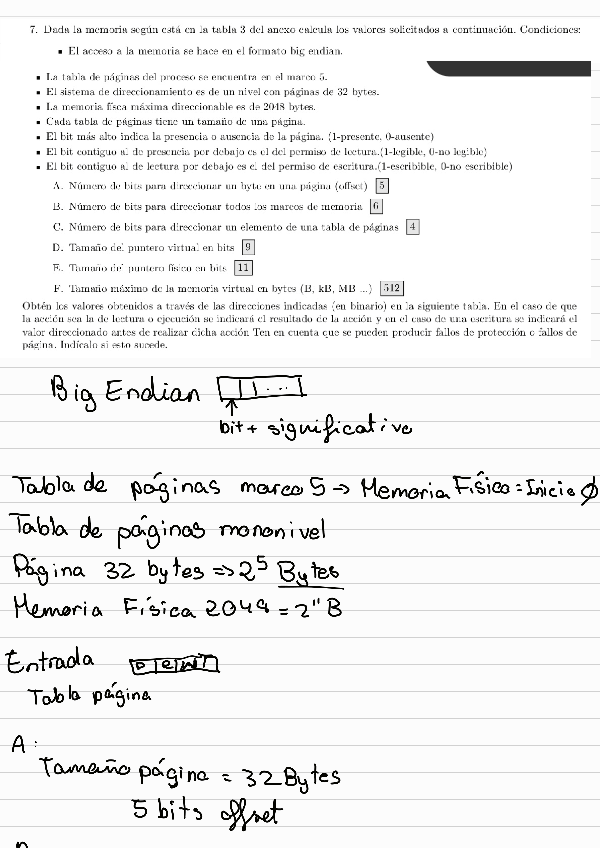 7. Dada la memoria según está en la tabla 3 del anexo calcula los valores solicitados a continuación. Condiciones:
▪ El acceso a la memoria se hace en el formato big endian.
▪ La tabla de páginas del proceso se encuentra en el marco 5.
▪ El sistema de direccionamiento es de un nivel con páginas de 32 bytes.
▪ La memoria física máxima direccionable es de 2048 bytes.
▪ Cada tabla de páginas tiene un tamaño de una página.
▪ El bit más alto indica la presencia o ausencia de la página. (1-presente, 0-ausente)
▪ El bit contiguo al de presencia por debajo es el del permiso de lectura.(1-legible, 0-no legible)
▪ El bit contiguo al de lectura por debajo es el del permiso de escritura.(1-escribible, 0-no escribible)
A. Número de bits para direccionar un byte en una página (offset) 5
B. Número de bits para direccionar todos los marcos de memoria 6
C. Número de bits para direccionar un elemento de una tabla de páginas 4
D. Tamaño del puntero virtual en bits 9
E. Tamaño del puntero físico en bits 11
F. Tamaño máximo de la memoria virtual en bytes (B, kB, MB ...) 512
Obtén los valores obtenidos a través de las direcciones indicadas (en binario) en la siguiente tabla. En el caso de que
la acción sea la de lectura o ejecución se indicará el resultado de la acción y en el caso de una escritura se indicará el
valor direccionado antes de realizar dicha acción Ten en cuenta que se pueden producir fallos de protección o fallos de
página. Indícalo si esto sucede.
Big Endian
bit + significative
Tabla de páginas marco 5 → Memoria Física = Inicio Ø
Tabla de páginas mononivel
Página 32 bytes ⇒ 2⁵ Bytes
Memoria Física 2048 = 2¹¹ B
Entrada
Tabla página
A:
Tamaño página = 32 Bytes
5 bits offset